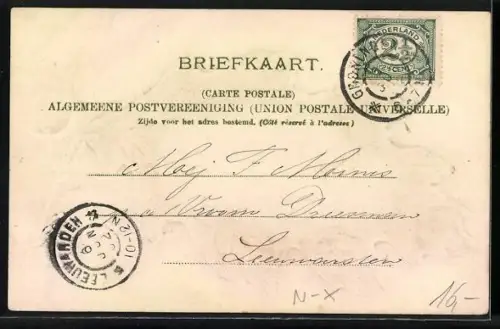 NEDERLAND
2½
CENT
BRIEFKAART.
(CARTE POSTALE)
ALGEMEENE POSTVEREENIGING (UNION POSTALE UNIVERSELLE)
Zijde voor het adres bestemd. (Côté réservé à l'adresse.)
Mej F
Vroom Dreesman
Leeuwarden
LEEUWARDEN
10-12 N
N-X
16,-